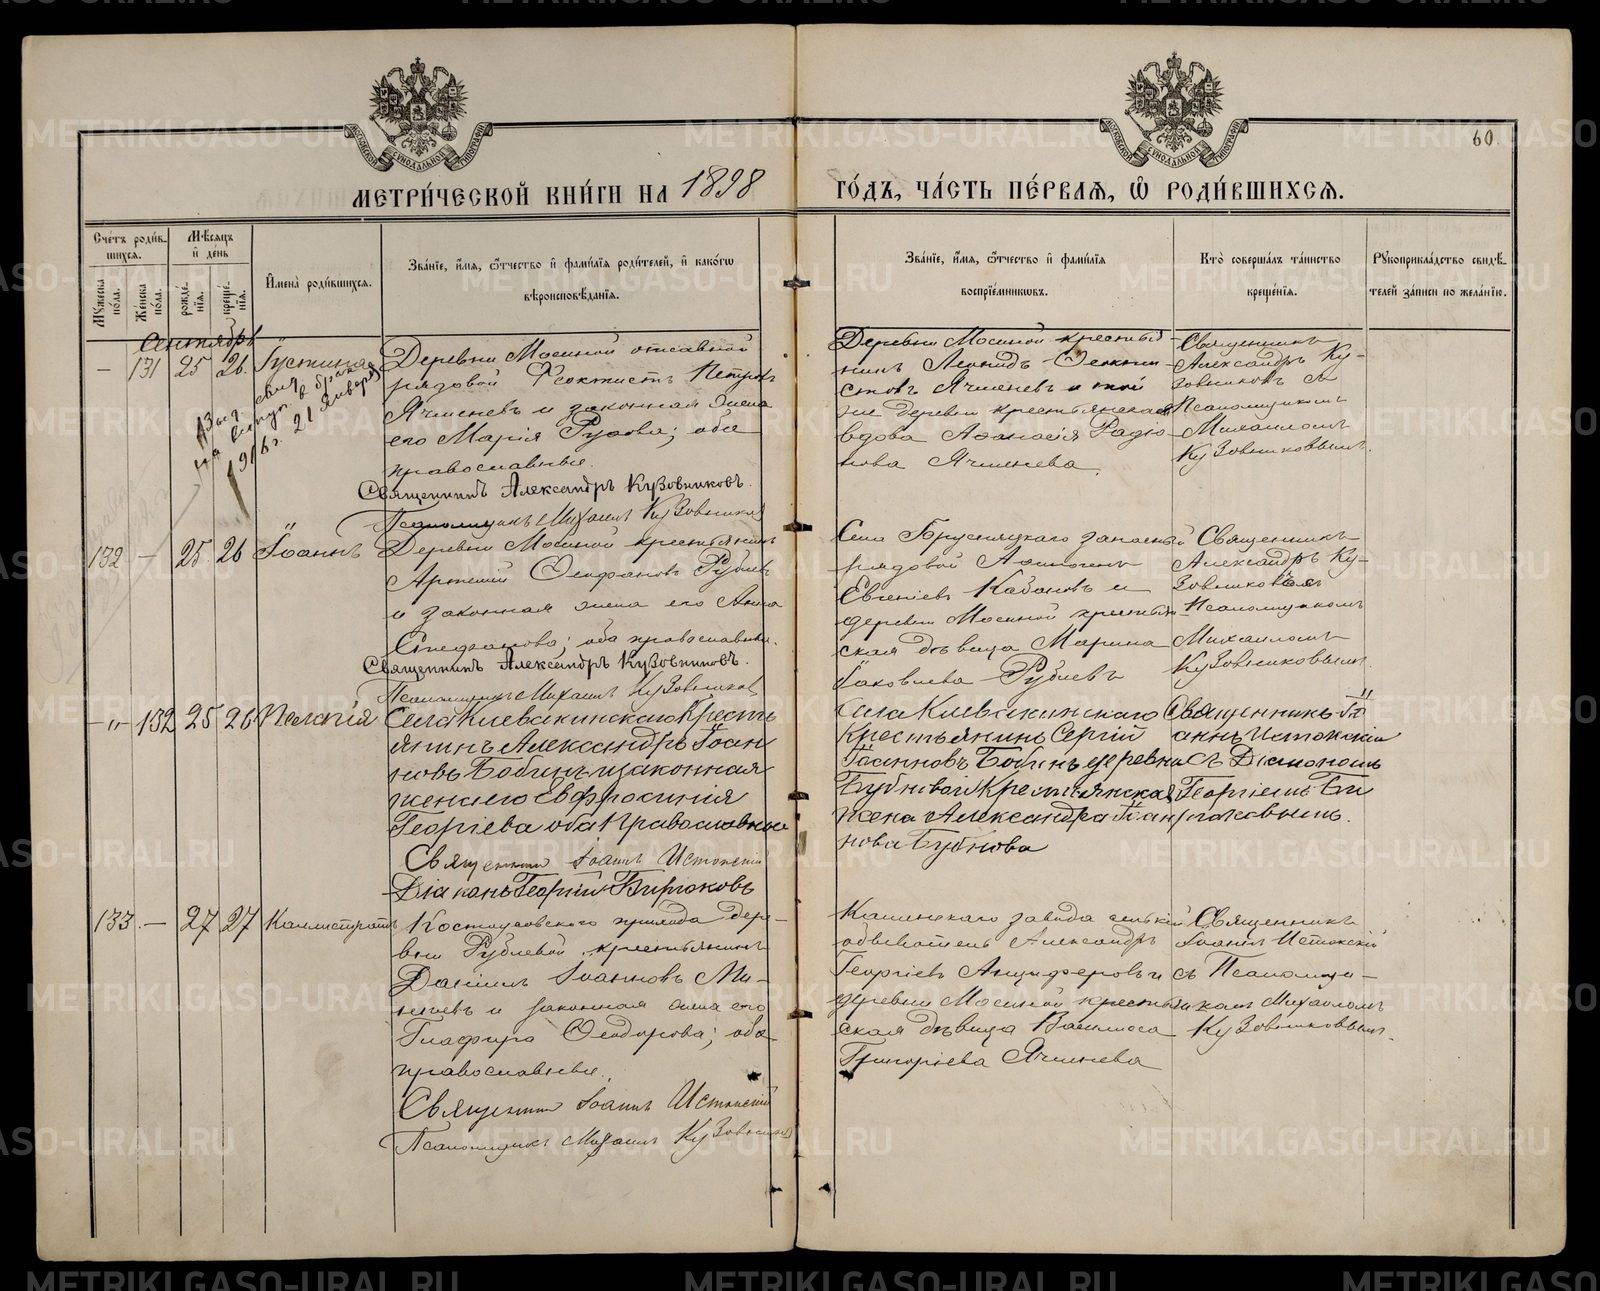 60.
МЕТРИ́ЧЕСКОЙ КНИ́ГИ НА 1898
ГО́ДЪ, ЧА́СТЬ ПЕ́РВАЯ, Ѽ РОДИ́ВШИХСЯ.
Сче́тъ роди́в-
шихся.
Мѣ́сяцъ
и҆ де́нь
Му́жеска
по́ла.
Же́нска
по́ла.
рожде́-
нїя.
креще́-
нїя.
И҆мена̀ роди́вшихся.
Зва́нїе, и҆́мя, ѻ҆́тчество и҆ фами́лїя роди́телей, и҆ како́гѡ
вѣроисповѣ́данїя.
Зва́нїе, и҆́мя, ѻ҆́тчество и҆ фами́лїя
воспрїе́мниковъ.
Кто̀ соверша́лъ та́инство
креще́нїя.
Рꙋкоприкла́дство свидѣ́-
телей за́писи по жела́нїю.
Сентябрь
— 131 25 26. Іустина
1916 г. 21 Января
Деревни Мосиной отставной
рядовой Ѳеоктистъ Петровъ
Ячменевъ и законная жена
его Марія ; оба
православные.
Священникъ Александръ Кузовниковъ.
Псаломщикъ Михаилъ Кузовников
Деревни Мосиной крестья-
нинъ Леонидъ Ѳеокти-
стовъ Ячменевъ и той
же деревни крестьянская
вдова Аѳанасія Радіо-
нова Ячменева.
Священникъ
Александръ Ку-
зовниковъ съ
Псаломщикомъ
Михаиломъ
Кузовниковымъ.
132 — 25 26 Іоаннъ
Деревни Мосиной крестьянинъ
Артемій Ѳеофановъ Рублевъ
и законная жена его Анна
Стефанова; оба православные.
Священникъ Александръ Кузовниковъ.
Псаломщикъ Михаилъ Кузовников
Села Брусницкаго запасный
рядовой
Евгеніевъ Кабановъ и
деревни Мосиной крестьян-
ская дѣвица Марина
Іаковлева Рублевъ
Священникъ
Александръ Ку-
зовниковъ съ
Псаломщикомъ
Михаиломъ
Кузовниковымъ.
—„— 132 25 26 Пелагія
Села Клевакинскаго Кресть
янинъ Александръ Іоан
новъ Бобинъ и законная
жена его Евфросинія
Георгіева оба Православные
Священникъ Іоаннъ Истокскій
Діаконъ Георгій Бирюковъ
Села Клевакинскаго
Крестьянинъ Сергій
Іоанновъ Бобинъ деревни
Бубновой Крестьянская
жена Александра Іоан
нова Бубнова
Священникъ Іо
аннъ Истокскій
съ Діакономъ
Георгіемъ Би
рюковымъ.
133 — 27 27 Каллистратъ
Костоусовского прихода дере-
вни Рублевой крестьянинъ
Даніилъ Іоанновъ Ми-
неевъ и законная жена его
Глафира Ѳеодорова; оба
православные.
Священникъ Іоаннъ Истокскій
Псаломщикъ Михаилъ Кузовников
Каменскаго завода сельскій
обыватель Александръ
Георгіевъ Анцыферовъ и
деревни Мосиной крестьян
ская дѣвица Васлисса
Григоріева Ячменева
Священникъ
Іоаннъ Истокскій
съ Псаломщи-
комъ Михаиломъ
Кузовниковымъ.
METRIKI.GASO-URAL.RU